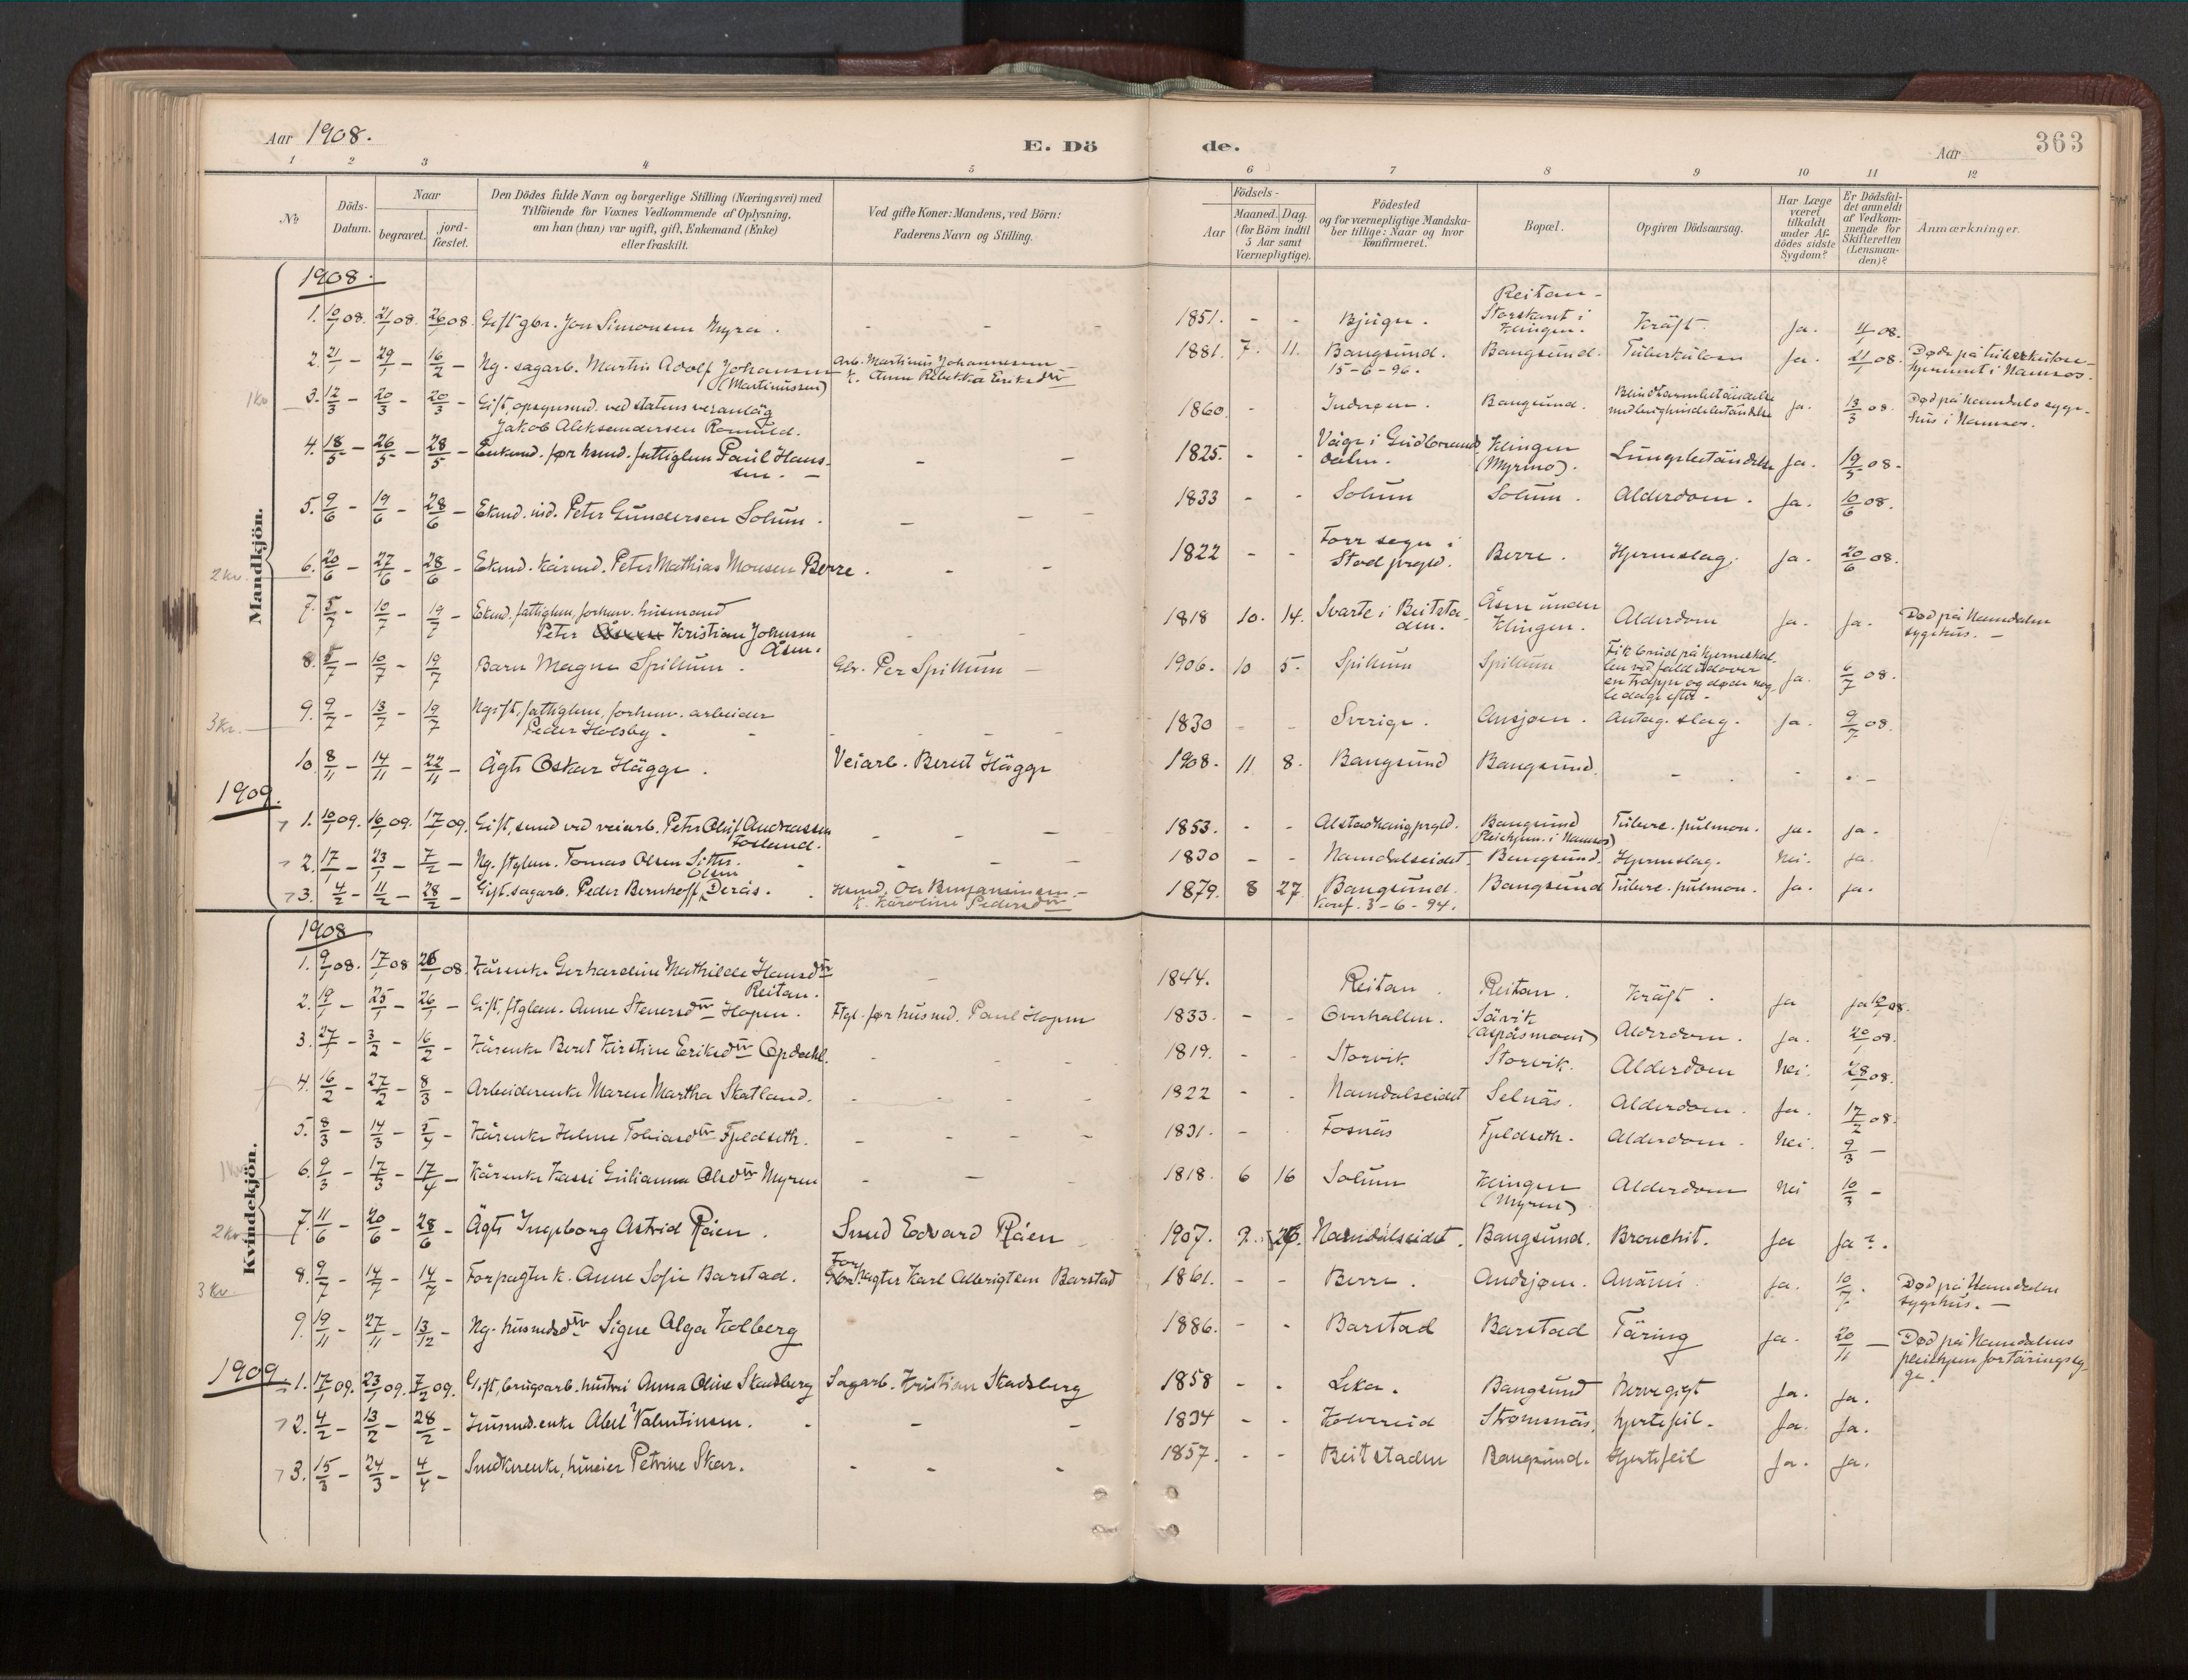 Aar 1908.
E. Döde.
Aar
363
1 2 3 4 5 6 7 8 9 10 11 12
No
Döds-Datum.
Naar
begravet.
jordfæstet.
Den Dödes fulde Navn og borgerlige Stilling (Næringsvei) med
Tilföiende for Voxnes Vedkommende af Oplysning,
om han (hun) var ugift, gift, Enkemand (Enke)
eller fraskilt.
Ved gifte Koner: Mandens, ved Börn:
Faderens Navn og Stilling.
Födsels-
Aar
Maaned. Dag.
(for Börn indtil
5 Aar samt
Værnepligtige).
Födested
og for værnepligtige Mandska-
ber tillige: Naar og hvor
konfirmeret.
Bopæl.
Opgiven Dödsaarsag.
Har Læge
været
tilkaldt
under Af-
dödes sidste
Sygdom?
Er Dödsfal-
det anmeldt
af Vedkom-
mende for
Skifteretten
(Lensman-
den)?
Anmærkninger.
Mandkjön.
1908.
1. 10/1 08. 21/1 08. 26/1 08. Gift gbr. Jon Simonsen Myra. - - - 1851. - - Bjugn. Reitan-
Storskaret i
Klingen. Kräft. Ja. 11/1 08.
2. 21/1 - 29/1 - 16/2 - Ug. sagarb. Martin Adolf Johansen
(Martinussen) Arb. Martinus Johannessen
k. Anna Rebekka Eriksdtr 1881. 7. 11. Bangsund.
15-6-96. Bangsund. Tuberkulose Ja. 21/1 08. Døde på tuberkulose-
hjemmet i Namsos.
1 kr
3. 12/3 - 20/3 - 20/3 - Gift, opsynsmd. ved statens veranläg
Jakob Aleksandersen Romuld. 1860. - Inderøen. Bangsund. Blindtarmbetändelse
med bughindebetändelse Ja. 13/3 08. Død på Namdals syge-
hus i Namsos.
4. 18/5 - 26/5 - 28/5 - Enkemd. før husmd. fattiglem Paul Hans-
sen. - - - 1825. - - Våge i Gudbrands
dalen. Klingen
(Myrmo). Lungebetändelse Ja. 19/5 08.
5. 9/6 - 19/6 - 28/6 - Ekmd. ind. Peter Gundersen Solum. - - - 1833 - - Solum Solum. Alderdom. Ja. 10/6 08.
2 kr.
6. 20/6 - 27/6 - 28/6 - Ekmd. kårmd. Peter Mathias Monsen Berre. - - 1822 - - Forr sogn i
Stod prgld. Berre. Hjerneslag. Ja. 20/6 08.
7. 5/7 - 10/7 - 19/7 Ekmd. fattiglem, forhenv. husmand
Peter Kristian Johnsen
Åsen. - - 1818 10. 14. Svarte i Beitsta-
den. Åsen under
Klingen. Alderdom Ja. Ja. Død på Namdalen
sygehus. -
8. 5/7 - 10/7 - 19/7 Barn Magne Spillum. Gbr. Per Spillum - 1906. 10 5. Spillum Spillum Fik brud på hjerneskal-
len ved fald udover
en trappe og døde nog-
le dage efter. Ja. 6/7 08.
3 kr.
9. 9/7 - 13/7 - 19/7 Ugift, fattiglem, forhenv. arbeider
Peder Holsby. - - - 1830 - - Sverige. Ansjøen. Antag. slag. Ja. 9/7 08.
10. 8/11 - 14/11 - 22/11 - Ägte Oskar Hägge. Veiarb. Berut Hägge 1908. 11 8. Bangsund Bangsund. - - - -
1909.
1. 10/1 09. 16/1 09. 17/1 09. Gift, smed ved veiarb. Peter Oluf Andreassen
Fosland. - - - 1853. - - Alstadhaug prgld. Bangsund
(Pleiehjem. i Namsos) Tuberc. pulmon. Ja. Ja.
2. 17/1 - 23/1 - 7/2 - Ug. ftglem. Tomas Olsen Sitter. - - - 1830 - - Namdalseidet Bangsund. Hjerneslag. Nei. Ja.
3. 4/2 - 11/2 - 28/2 - Gift. sagarb. Peder Bernhoff Olsen Derås. Husmd. Ole Benjaminsen -
k. Karoline Pedersdtr 1879. 8 27. Bangsund.
Konf. 3-6-94. Bangsund Tuberc. pulmon. Ja. Ja.
Kvindekjön.
1908
1. 9/1 08. 17/1 08 26/1 08. Kårenke Gerhardine Mathilde Hansdtr
Reitan. - 1844. Reitan. Reitan. Kräft. Ja Ja 10/1 08.
2. 19/1 - 25/1 - 26/1 - Gift, ftglem. Anne Stenersdtr Hopen. Ftgl. før husmd. Paul Hopen 1833. - - Overhallen. Sävik
(Aspåsmoen) Alderdom. Ja. 20/1 08.
3. 27/1 - 3/2 - 16/2 - Kårenke Beret Kirstine Eriksdtr Opdahl. - - 1819. - - Storvik. Storvik. Alderdom Nei. 28/1 08.
4. 16/2 - 27/2 - 8/3 - Arbeiderenke Maren Martha Skatland. - - - - 1822 - - Namdalseidet Selnäs. Alderdom. Ja. 17/2 08.
5. 8/3 - 14/3 - 5/4 - Kårenke Helene Tobiasdtr Fjeldseth. - - - - 1831. - Fosnäs Fjeldseth. Alderdom. Nei. 9/3 -
1 kr
6. 9/3 - 17/3 - 17/4 - Kårenke Kassi Gulianna Olsdtr Myren - - - 1818. 6 16 Solum Klingen
(Myren) Alderdom Nei 10/3 -
2 kr
7. 11/6 - 20/6 - 28/6 - Ägte Ingeborg Astrid Råen. Smed Edvard Råen 1907. 9. 26. Namdalseidet. Bangsund. Bronchit. Ja Ja?.
3 kr.
8. 9/7 - 14/7 - 14/7 - Forpagter k. Anne Sofie Barstad. Forpagter Karl Albrigtsen Barstad 1861. - - Berre. Andsjøen. Anämi. Ja. 10/7. Død på Namdalen
sygehus. -
9. 19/11 - 27/11 - 13/12 - Ug. husmdsdtr Signe Alga Kolberg 1886. - - Barstad Barstad Täring Ja. 20/11 - Død på Namdalens
pleiehjem for täringssy-
ge.
1909.
1. 17/1 09. 23/1 09. 7/2 09. Gift, brugsarb. hustru Anna Oline Skadsberg Sagarb. Kristian Skadsberg 1858 - - Leka. Bangsund Nervegigt Ja. Ja.
2. 4/2 - 13/2 - 28/2 - Husmd.enke Abel Valentinsen. - - - 1834 - - Kolvereid Strømsnäs. hjertefeil. Ja. Ja.
3. 15/3 - 24/3 - 4/4 - Smedkårenke, huseier Petrine Skar. - - - 1857. - - Beitstaden Bangsund. Hjertefeil Ja. Ja.